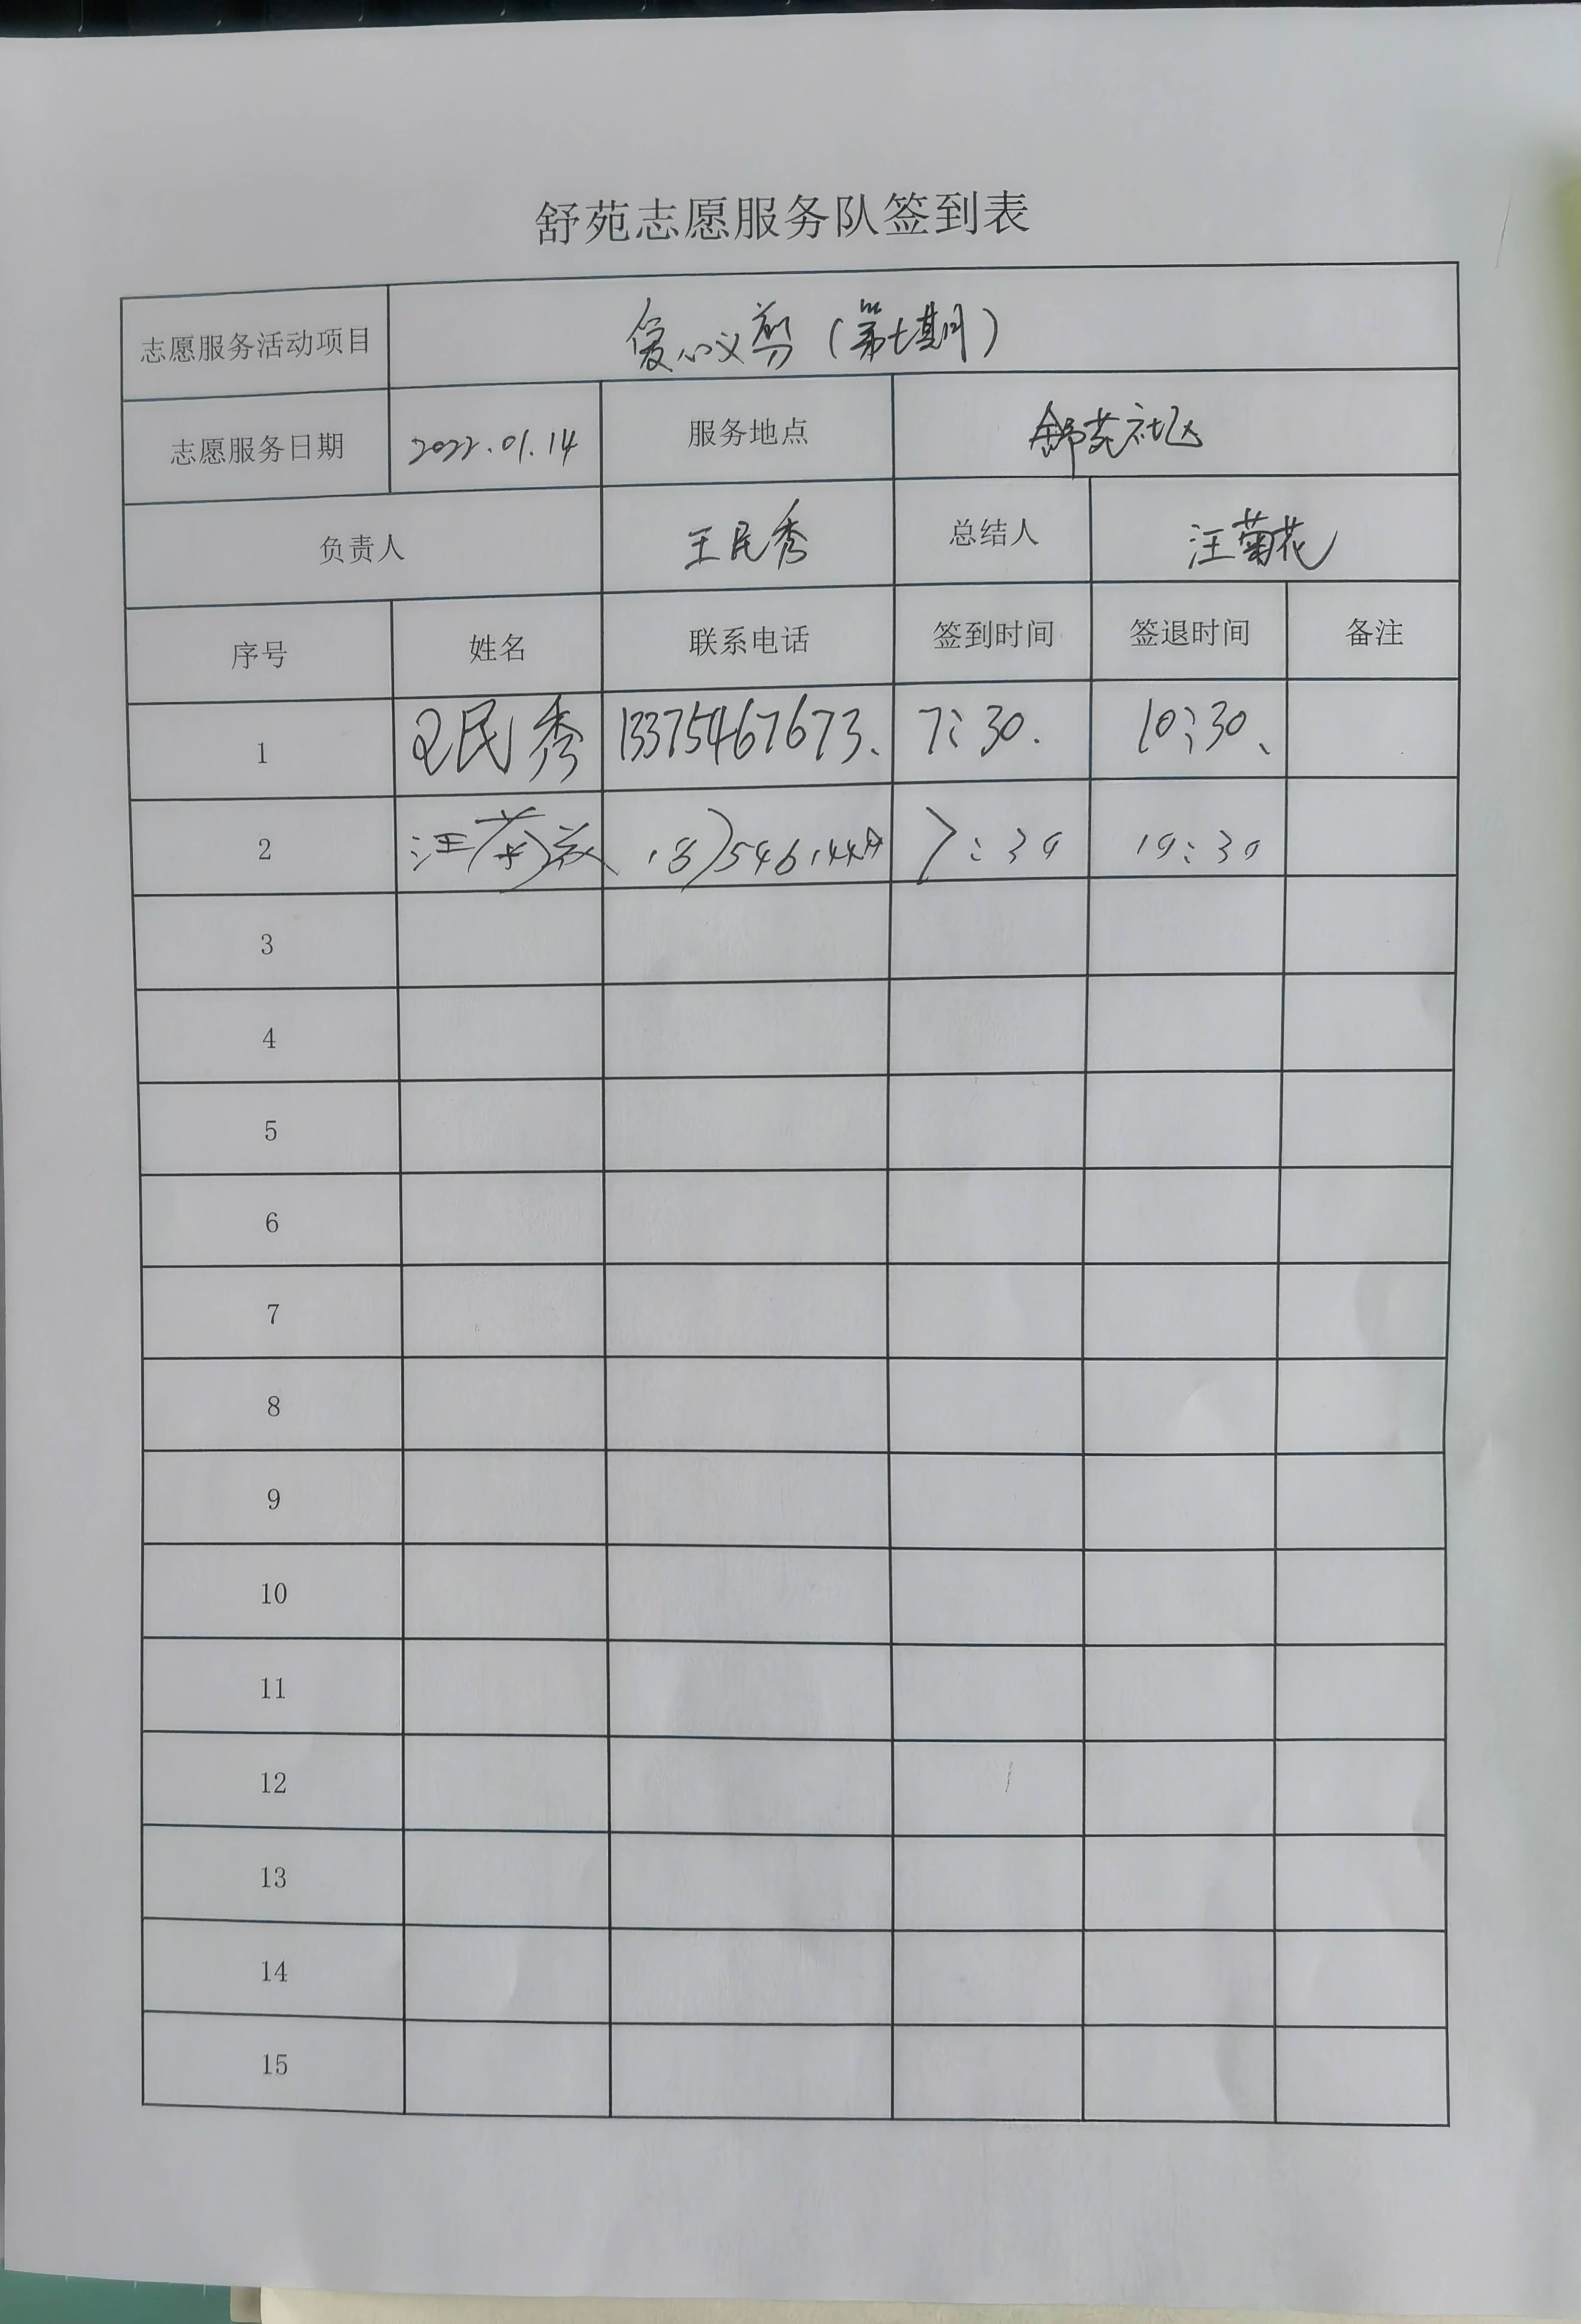 舒苑志愿服务队签到表
志愿服务活动项目 爱心义剪（第七期）
志愿服务日期 2022.01.14 服务地点 舒苑社区
负责人 王民秀 总结人 汪菊花
序号 姓名 联系电话 签到时间 签退时间 备注
1 王民秀 13375467673、 7:30. 10:30、
2 汪菊花 7:30 10:30
3
4
5
6
7
8
9
10
11
12
13
14
15